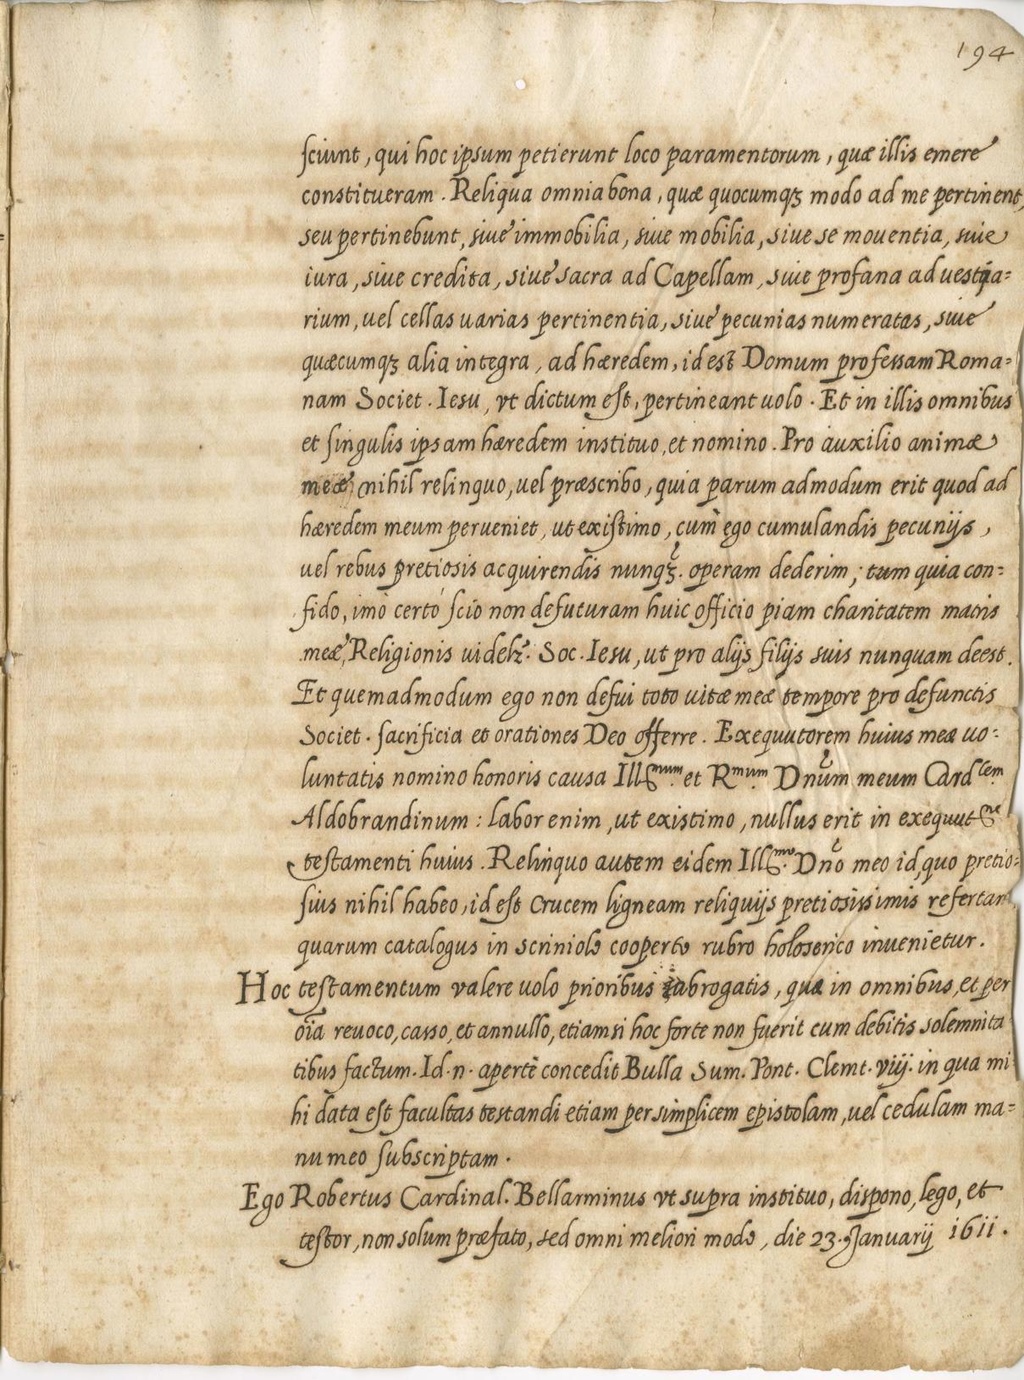 194
sciunt, qui hoc ipsum petierunt loco paramentorum, quæ illis emere
constitueram. Reliqua omnia bona, quæ quocumqꝫ modo ad me pertinent,
seu pertinebunt, siue immobilia, siue mobilia, siue se mouentia, siue
iura, siue credita, siue sacra ad Capellam, siue profana ad uestia=
rium, uel cellas uarias pertinentia, siue pecunias numeratas, siue
quæcumqꝫ alia integra, ad hæredem, id est Domum professam Roma=
nam Societ. Iesu, vt dictum est, pertineant uolo. Et in illis omnibus
et singulis ipsam hæredem instituo, et nomino. Pro auxilio animæ
meæ nihil relinquo, uel præscribo, quia parum admodum erit quod ad
hæredem meum perueniet, ut existimo, cum ego cumulandis pecunijs,
uel rebus pretiosis acquirendis nunqꝫ. operam dederim; tum quia con=
fido, imò certò scio non defuturam huic officio piam charitatem matris
meæ, Religionis uidelꝫ. Soc. Iesu, ut pro alijs filijs suis nunquam deest.
Et quemadmodum ego non defui toto uitæ meæ tempore pro defunctis
Societ. sacrificia et orationes Deo offerre. Exequutorem huius meæ uo=
luntatis nomino honoris causa Ill.mum et R.mum Dnum meum Cardlem
Aldobrandinum: labor enim, ut existimo, nullus erit in exequut.ne
testamenti huius. Relinquo autem eidem Ill.mo Dno meo id, quo pretio=
sius nihil habeo, id est Crucem ligneam reliquijs pretiosissimis refertam,
quarum catalogus in scriniolo cooperto rubro holoserico inuenietur.
Hoc testamentum valere uolo prioribus abrogatis, quæ in omnibus, et per
oĩa reuoco, casso, et annullo, etiamsi hoc forte non fuerit cum debitis solemnita
tibus factum. Id.n. apertè concedit Bulla Sum. Pont. Clemt. viij. in qua mi
hi data est facultas testandi etiam per simplicem epistolam, uel cedulam ma=
nu meo subscriptam.
Ego Robertus Cardinal. Bellarminus vt supra instituo, dispono, lego, et
testor, non solum præfato, sed omni meliori modo, die 23. Januarij 1611.